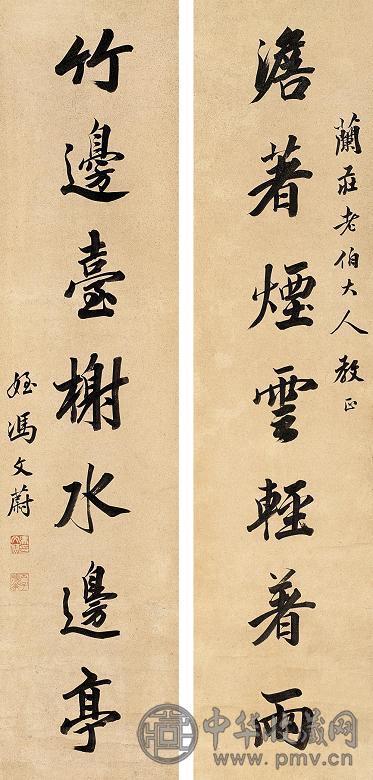 蘭莊老伯大人教正
澹著煙雲輕著雨
竹邊臺榭水邊亭
姪馮文蔚
中华收藏网
www.pmv.cn